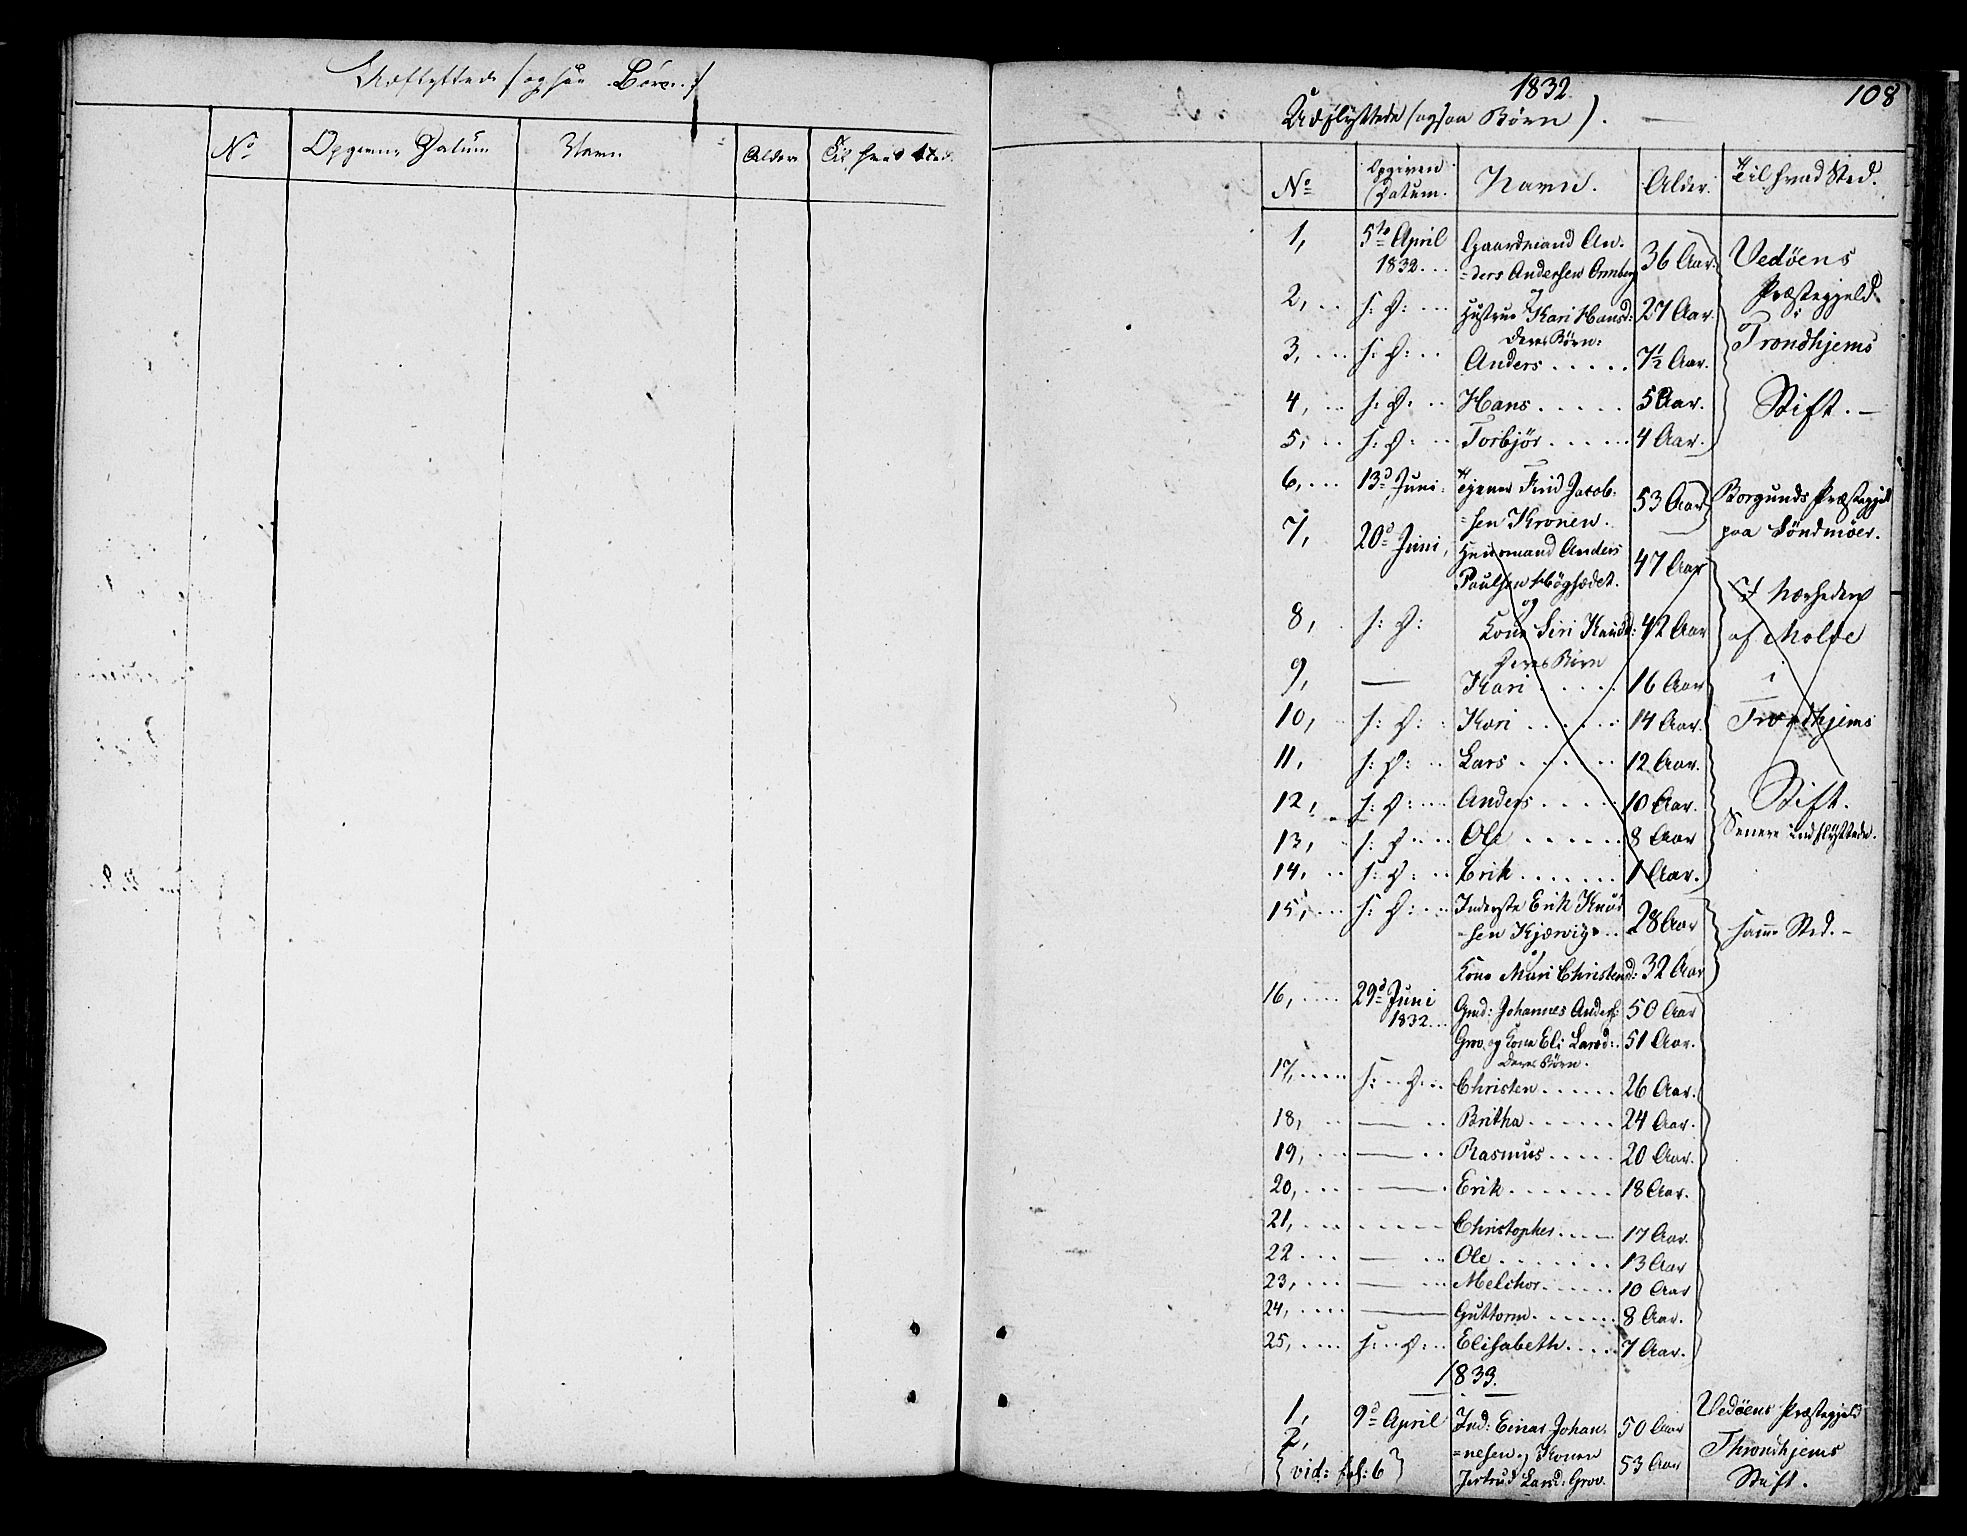 Udflyttede /ogsaa Børn:/
No Opgivne Datum Navn Alder Til hvad Sted.
1832
108
Udflyttede (ogsaa Børn).
No Opgiven Datum. Navn. Alder. Til hvad Sted.
1, 5te April Gaardmand An- 36 Aar. Vedøens
1832... =ders Andersen
2, .. s: D: ... og Hustrue Kari Hansd: 27 Aar. Præstegjeld
Deres Børn: i
3, ... s: D: .. Anders ..... 7½ Aar. Trondhjems
4, .. s: D. .. Hans ..... 5 Aar. Stift. —
5, ... s: D: ... Torbjør ..... 4 Aar.
6, ... 13d Juni. Jacob- 53 Aar Borgunds Præstegjeld
=sen Kronen. paa Søndmøer.
7, 20d Juni, Huusmand Anders 47 Aar
Paulsen Høgsædet. I Nærheden
8, s: D: og Kone Siri Knudsd: 42 Aar af Molde
Deres Børn
9, — Kari ..... 16 Aar i
10, s: D: Kari ..... 14 Aar. Trondhjems
11, s: D: .. Lars ..... 12 Aar.
12, s: D: .... Anders ..... 10 Aar. Stift.
13, s: D .... Ole ...... 8 Aar Senere indflyttede.
14, .. s: D: .. Erik ....... 1 Aar.
15, ... s: D: ... Inderste Erik Knud 28 Aar
=sen Kjørvig .. samme Sted. —
og Kone Mari Christend: 32 Aar
16, .... 29d Juni Gmd: Johannes Anders: 50 Aar
1832... Grov og Kone Eli Larsd: 51 Aar.
Deres Børn.
17, ..... s: .. D... Christen ...... 26 Aar.
18, — .. Britha ...... 24 Aar.
19, ... — .. Rasmus ..... 20 Aar.
20, .... — . Erik ....... 18 Aar.
21, .... ..... Christopher .... 17 Aar.
22 .... — .. Ole ........ 13 Aar
23, .... — ... Melchor ...... 10 Aar
24, ..... — Guttorm ....... 8 Aar.
25, ..... s: .. D: .. Elisabeth ..... 7 Aar.
1833.
1, 9d April Ind: Einar Johan- 50 Aar Vedøens Præstegjeld
2, =nesen og Konen 53 Aar Throndhjems
{vid: fol: 6} Jertrud Larsd: Grov. Stift.